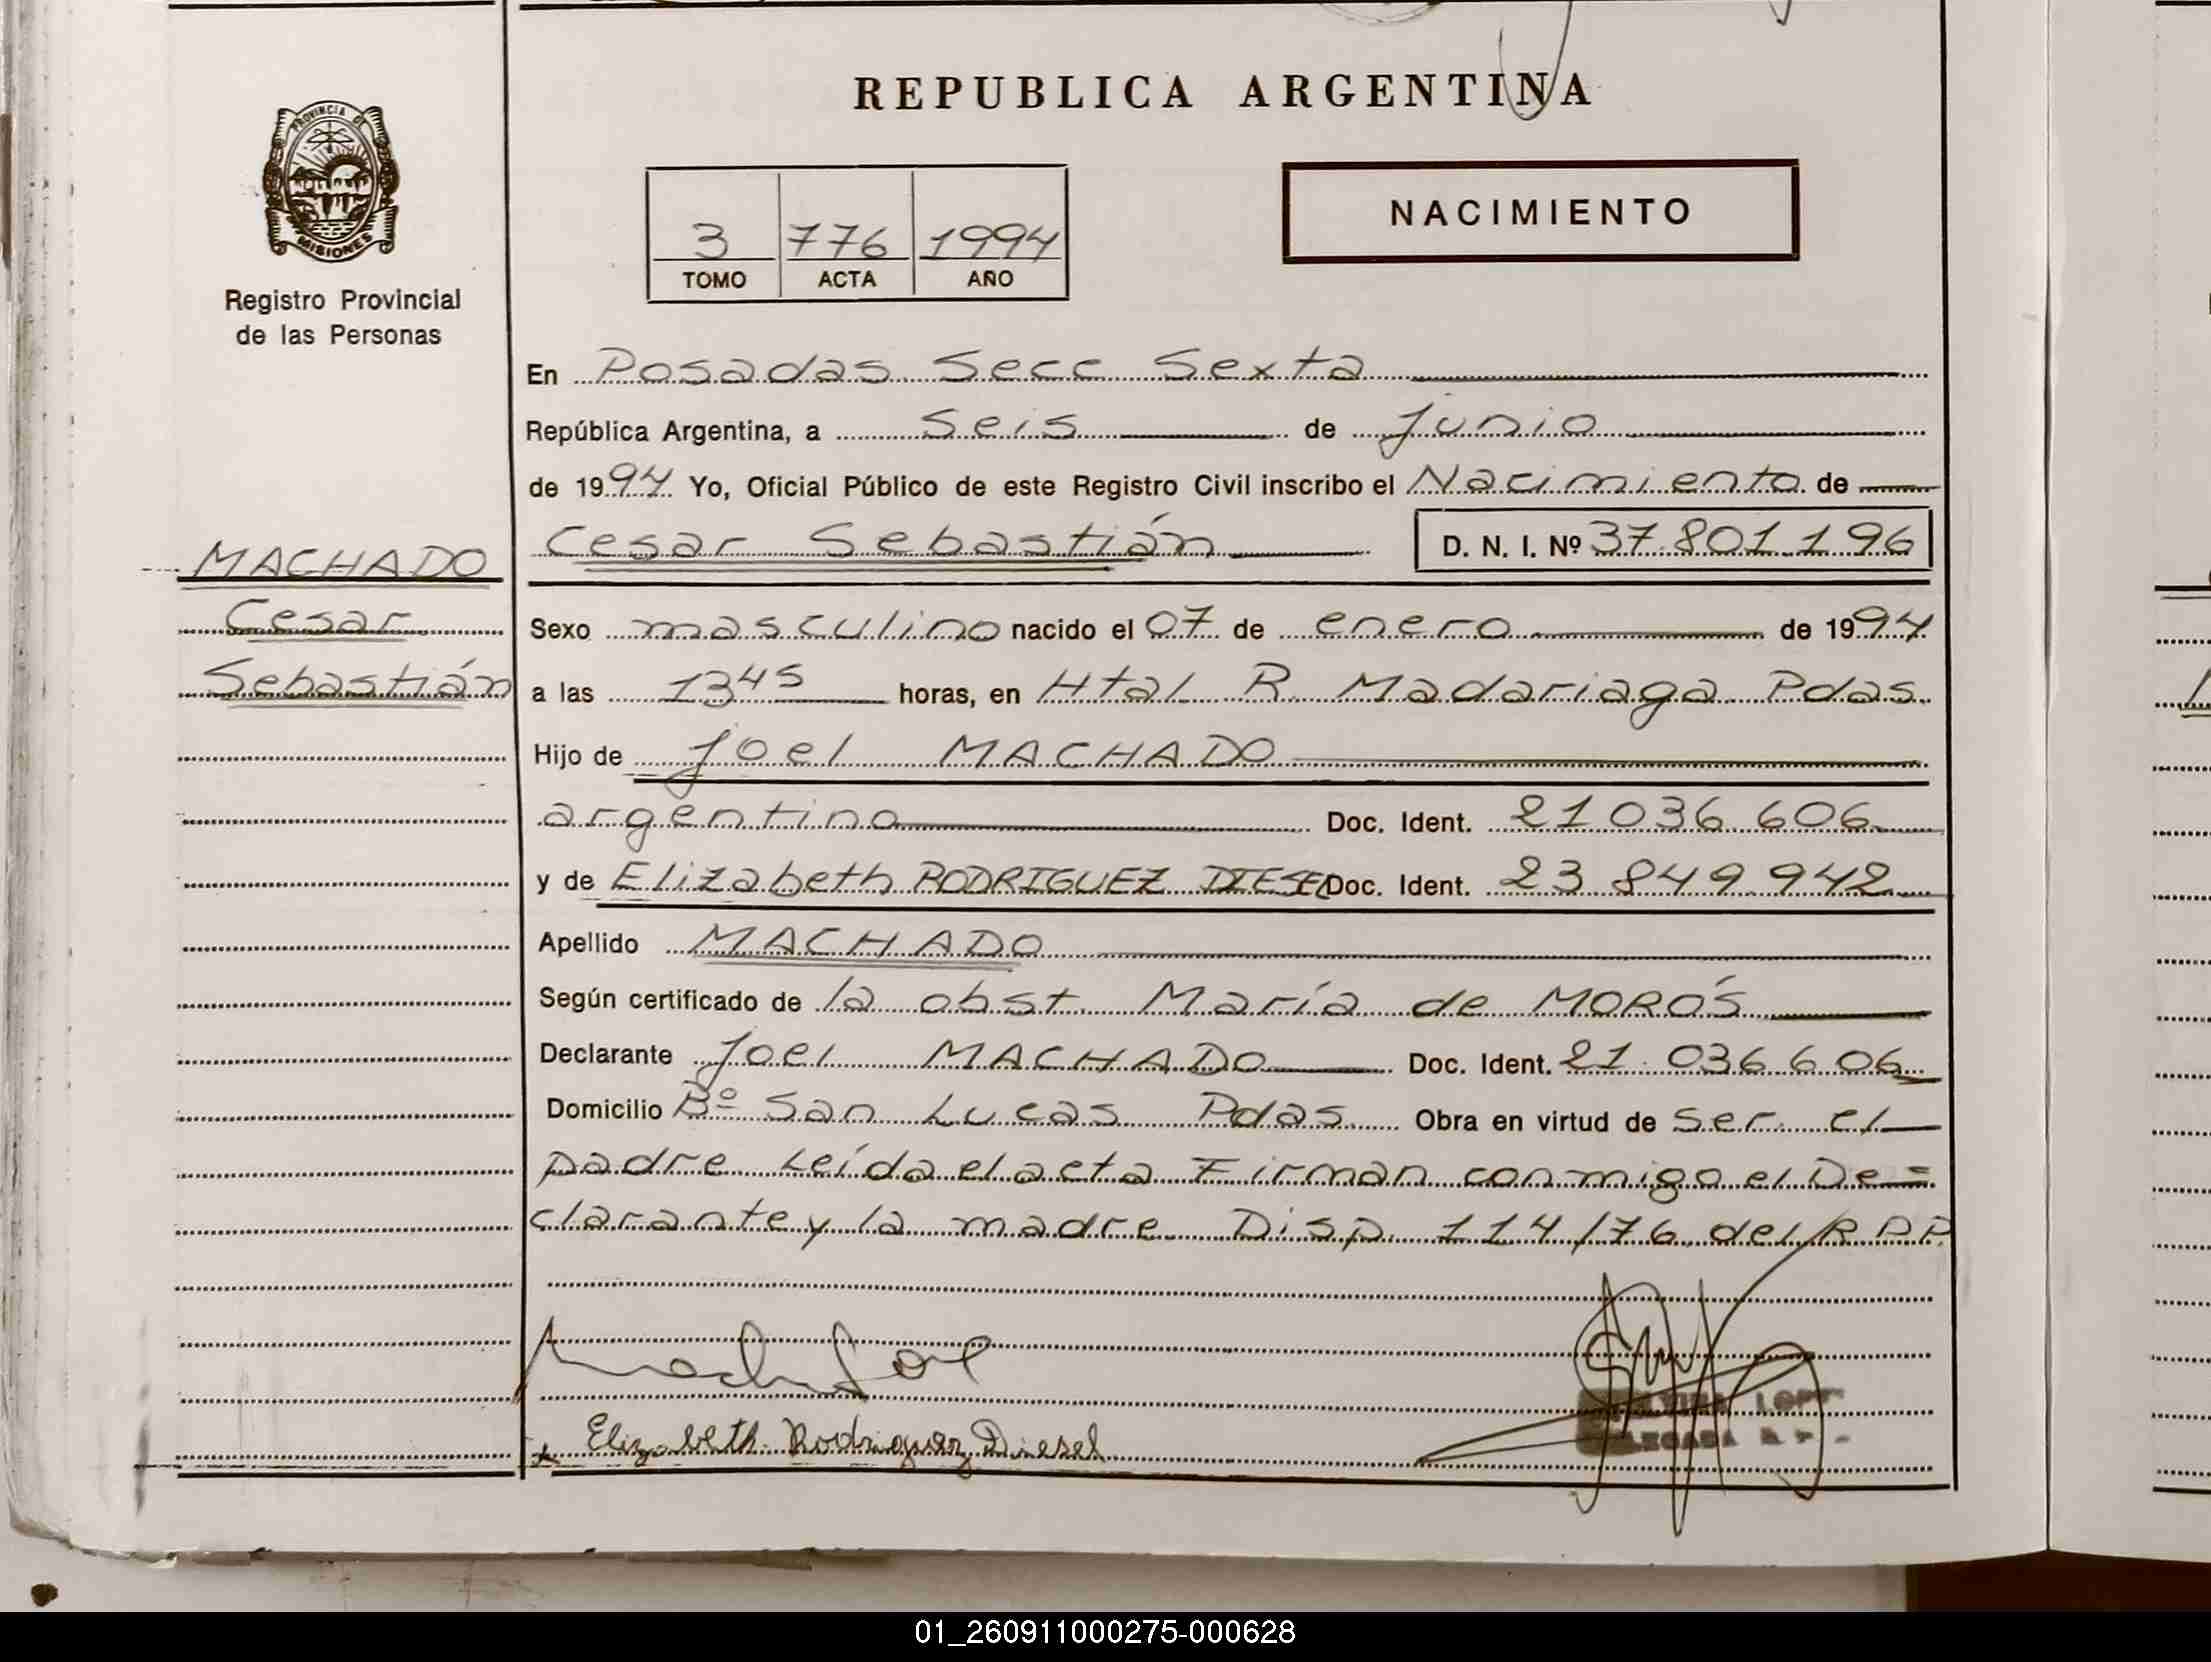 REPUBLICA ARGENTINA
PROVINCIA DE
MISIONES
Registro Provincial
de las Personas
NACIMIENTO
3 776 1994
TOMO ACTA AÑO
En Posadas Secc Sexta
República Argentina, a seis de junio
de 1994 Yo, Oficial Público de este Registro Civil inscribo el Nacimiento de
Cesar Sebastián D. N. I. Nº 37.801.196
MACHADO
Cesar
Sebastián
Sexo masculino nacido el 07 de enero de 1994
a las 13 45 horas, en Htal R. Madariaga Pdas.
Hijo de Joel MACHADO
argentino Doc. Ident. 21 036 606
y de Elizabeth RODRIGUEZ DIESEL Doc. Ident. 23 849 942
Apellido MACHADO
Según certificado de la obst. María de MORÓS
Declarante Joel MACHADO Doc. Ident. 21.036 606
Domicilio Bº San Lucas Pdas. Obra en virtud de ser el
padre Leída el acta Firman conmigo el De=
clarante y la madre. Disp. 114/76 del R P P.
Elizabeth Rodriguez Diesel
01_260911000275-000628